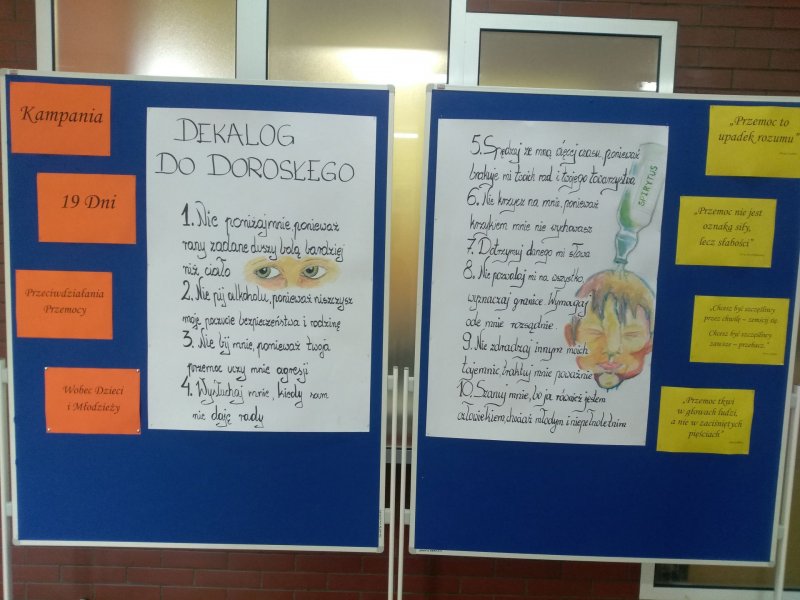 Kampania
19 Dni
Przeciwdziałania
Przemocy
Wobec Dzieci
i Młodzieży
DEKALOG
DO DOROSŁEGO
1. Nie poniżaj mnie, ponieważ
rany zadane duszy bolą bardziej
niż ciało
2. Nie pij alkoholu, ponieważ niszczysz
moje poczucie bezpieczeństwa i rodzinę
3. Nie bij mnie, ponieważ Twoja
przemoc uczy mnie agresji
4. Wysłuchaj mnie, kiedy sam
nie daję rady
5. Spędzaj ze mną więcej czasu, ponieważ
brakuje mi twoich rad i twojego towarzystwa
6. Nie krzycz na mnie, ponieważ
krzykiem mnie nie wychowasz
7. Dotrzymuj danego mi słowa
8. Nie pozwalaj mi na wszystko,
wyznaczaj granice. Wymagaj
ode mnie rozsądnie
9. Nie zdradzaj innym moich
tajemnic, traktuj mnie poważnie
10. Szanuj mnie, bo ja również jestem
człowiekiem, chociaż młodym i niepełnoletnim
SPIRYTUS
„Przemoc to
upadek rozumu"
„Przemoc nie jest
oznaką siły,
lecz słabości"
„Chcesz być szczęśliwy
przez chwilę – zemścij się.
Chcesz być szczęśliwy
zawsze – przebacz."
„Przemoc tkwi
w głowach ludzi,
a nie w zaciśniętych
pięściach"